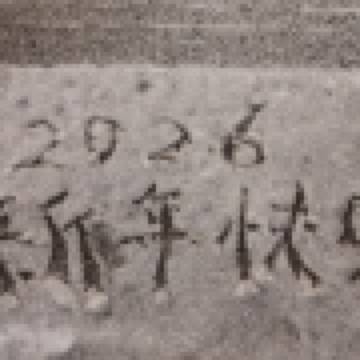 2026
新年快